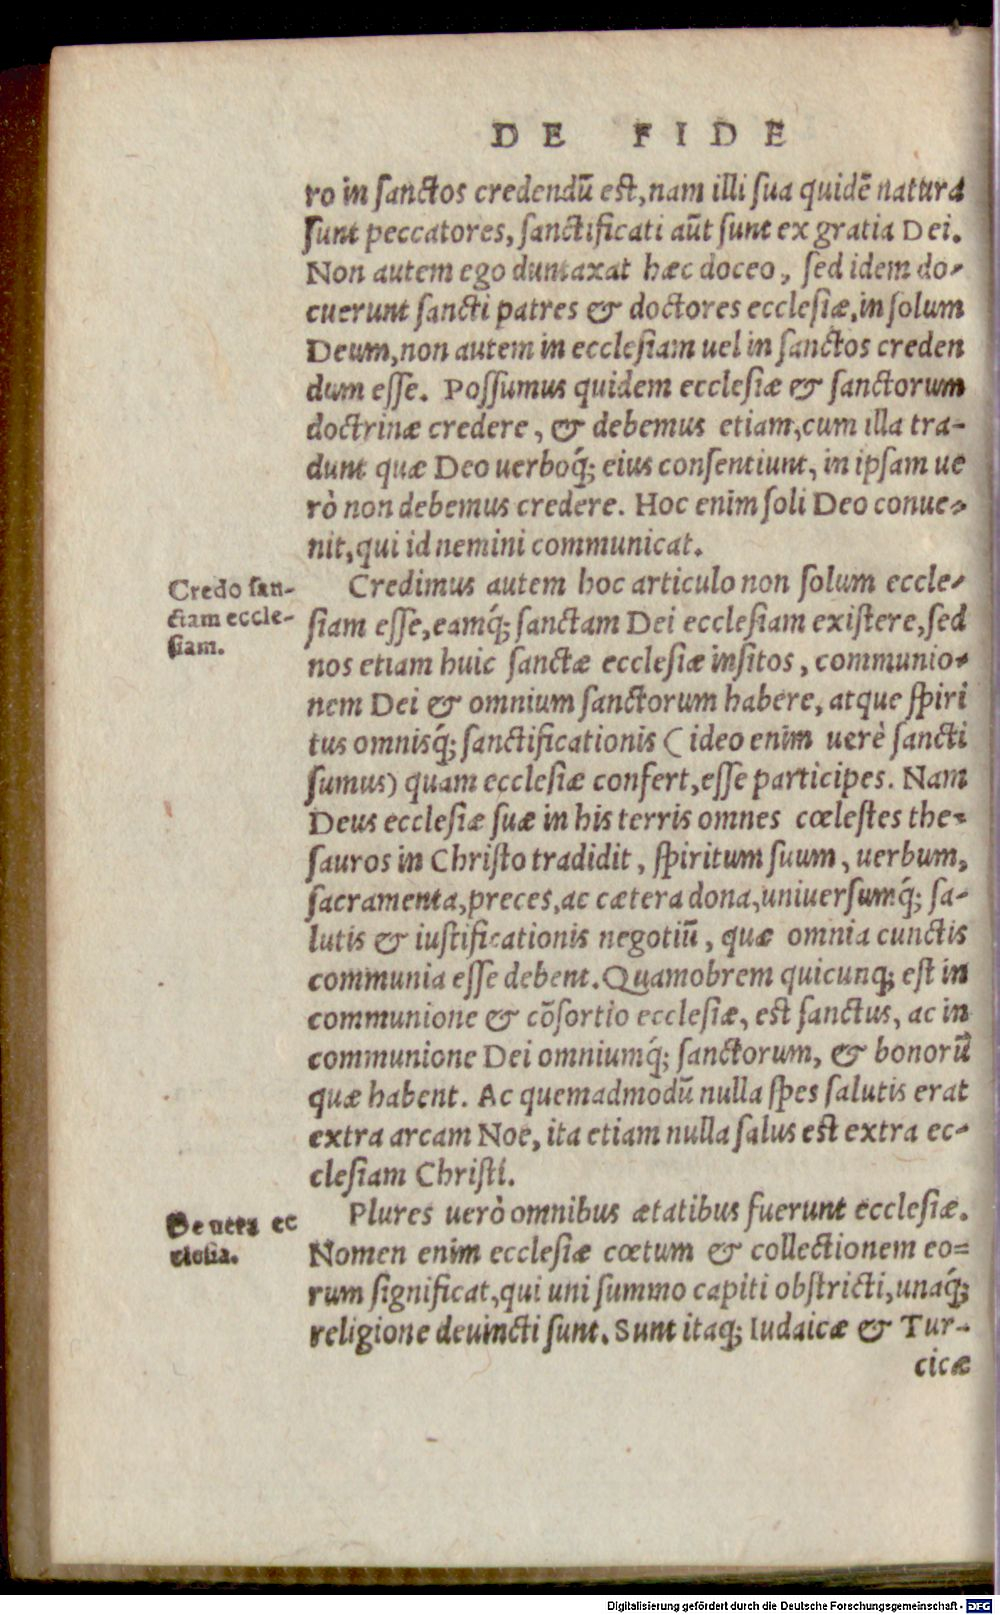 DE FIDE
ro in ſanctos credendū est, nam illi ſua quidē natura
ſunt peccatores, ſanctificati aūt ſunt ex gratia Dei.
Non autem ego duntaxat hæc doceo, ſed idem do-
cuerunt ſancti patres & doctores ecclesiæ, in ſolum
Deum, non autem in ecclesiam uel in ſanctos creden
dum eſſe. Poſſumus quidem ecclesiæ & ſanctorum
doctrinæ credere, & debemus etiam, cum illa tra-
dunt quæ Deo uerboq́; eius conſentiunt, in ipſam ue
rò non debemus credere. Hoc enim ſoli Deo conue-
nit, qui id nemini communicat.
Credo ſan-
ctam eccle-
ſiam.
Credimus autem hoc articulo non ſolum eccle-
ſiam eſſe, eamq́; ſanctam Dei eccleſiam exiſtere, ſed
nos etiam huic ſanctæ eccleſiæ inſitos, communio-
nem Dei & omnium ſanctorum habere, atque ſpiri
tus omnisq́; ſanctificationis (ideo enim uerè ſancti
ſumus) quam eccleſiæ confert, eſſe participes. Nam
Deus eccleſiæ ſuæ in his terris omnes cœleſtes the-
ſauros in Chriſto tradidit, ſpiritum ſuum, uerbum,
ſacramenta, preces, ac cætera dona, uniuerſumq́; ſa-
lutis & iuſtificationis negotiū, quæ omnia cunctis
communia eſſe debent. Quamobrem quicunq; eſt in
communione & cōſortio eccleſiæ, est ſanctus, ac in
communione Dei omniumq́; ſanctorum, & bonorū
quæ habent. Ac quemadmodū nulla ſpes ſalutis erat
extra arcam Noe, ita etiam nulla ſalus est extra ec-
cleſiam Chriſti.
De uera ec
cleſia.
Plures uerò omnibus ætatibus fuerunt eccleſiæ.
Nomen enim eccleſiæ cœtum & collectionem eo-
rum ſignificat, qui uni ſummo capiti obſtricti, unaq́;
religione deuincti ſunt. Sunt itaq; Iudaicæ & Tur-
cicæ
Digitalisierung gefördert durch die Deutsche Forschungsgemeinschaft - DFG